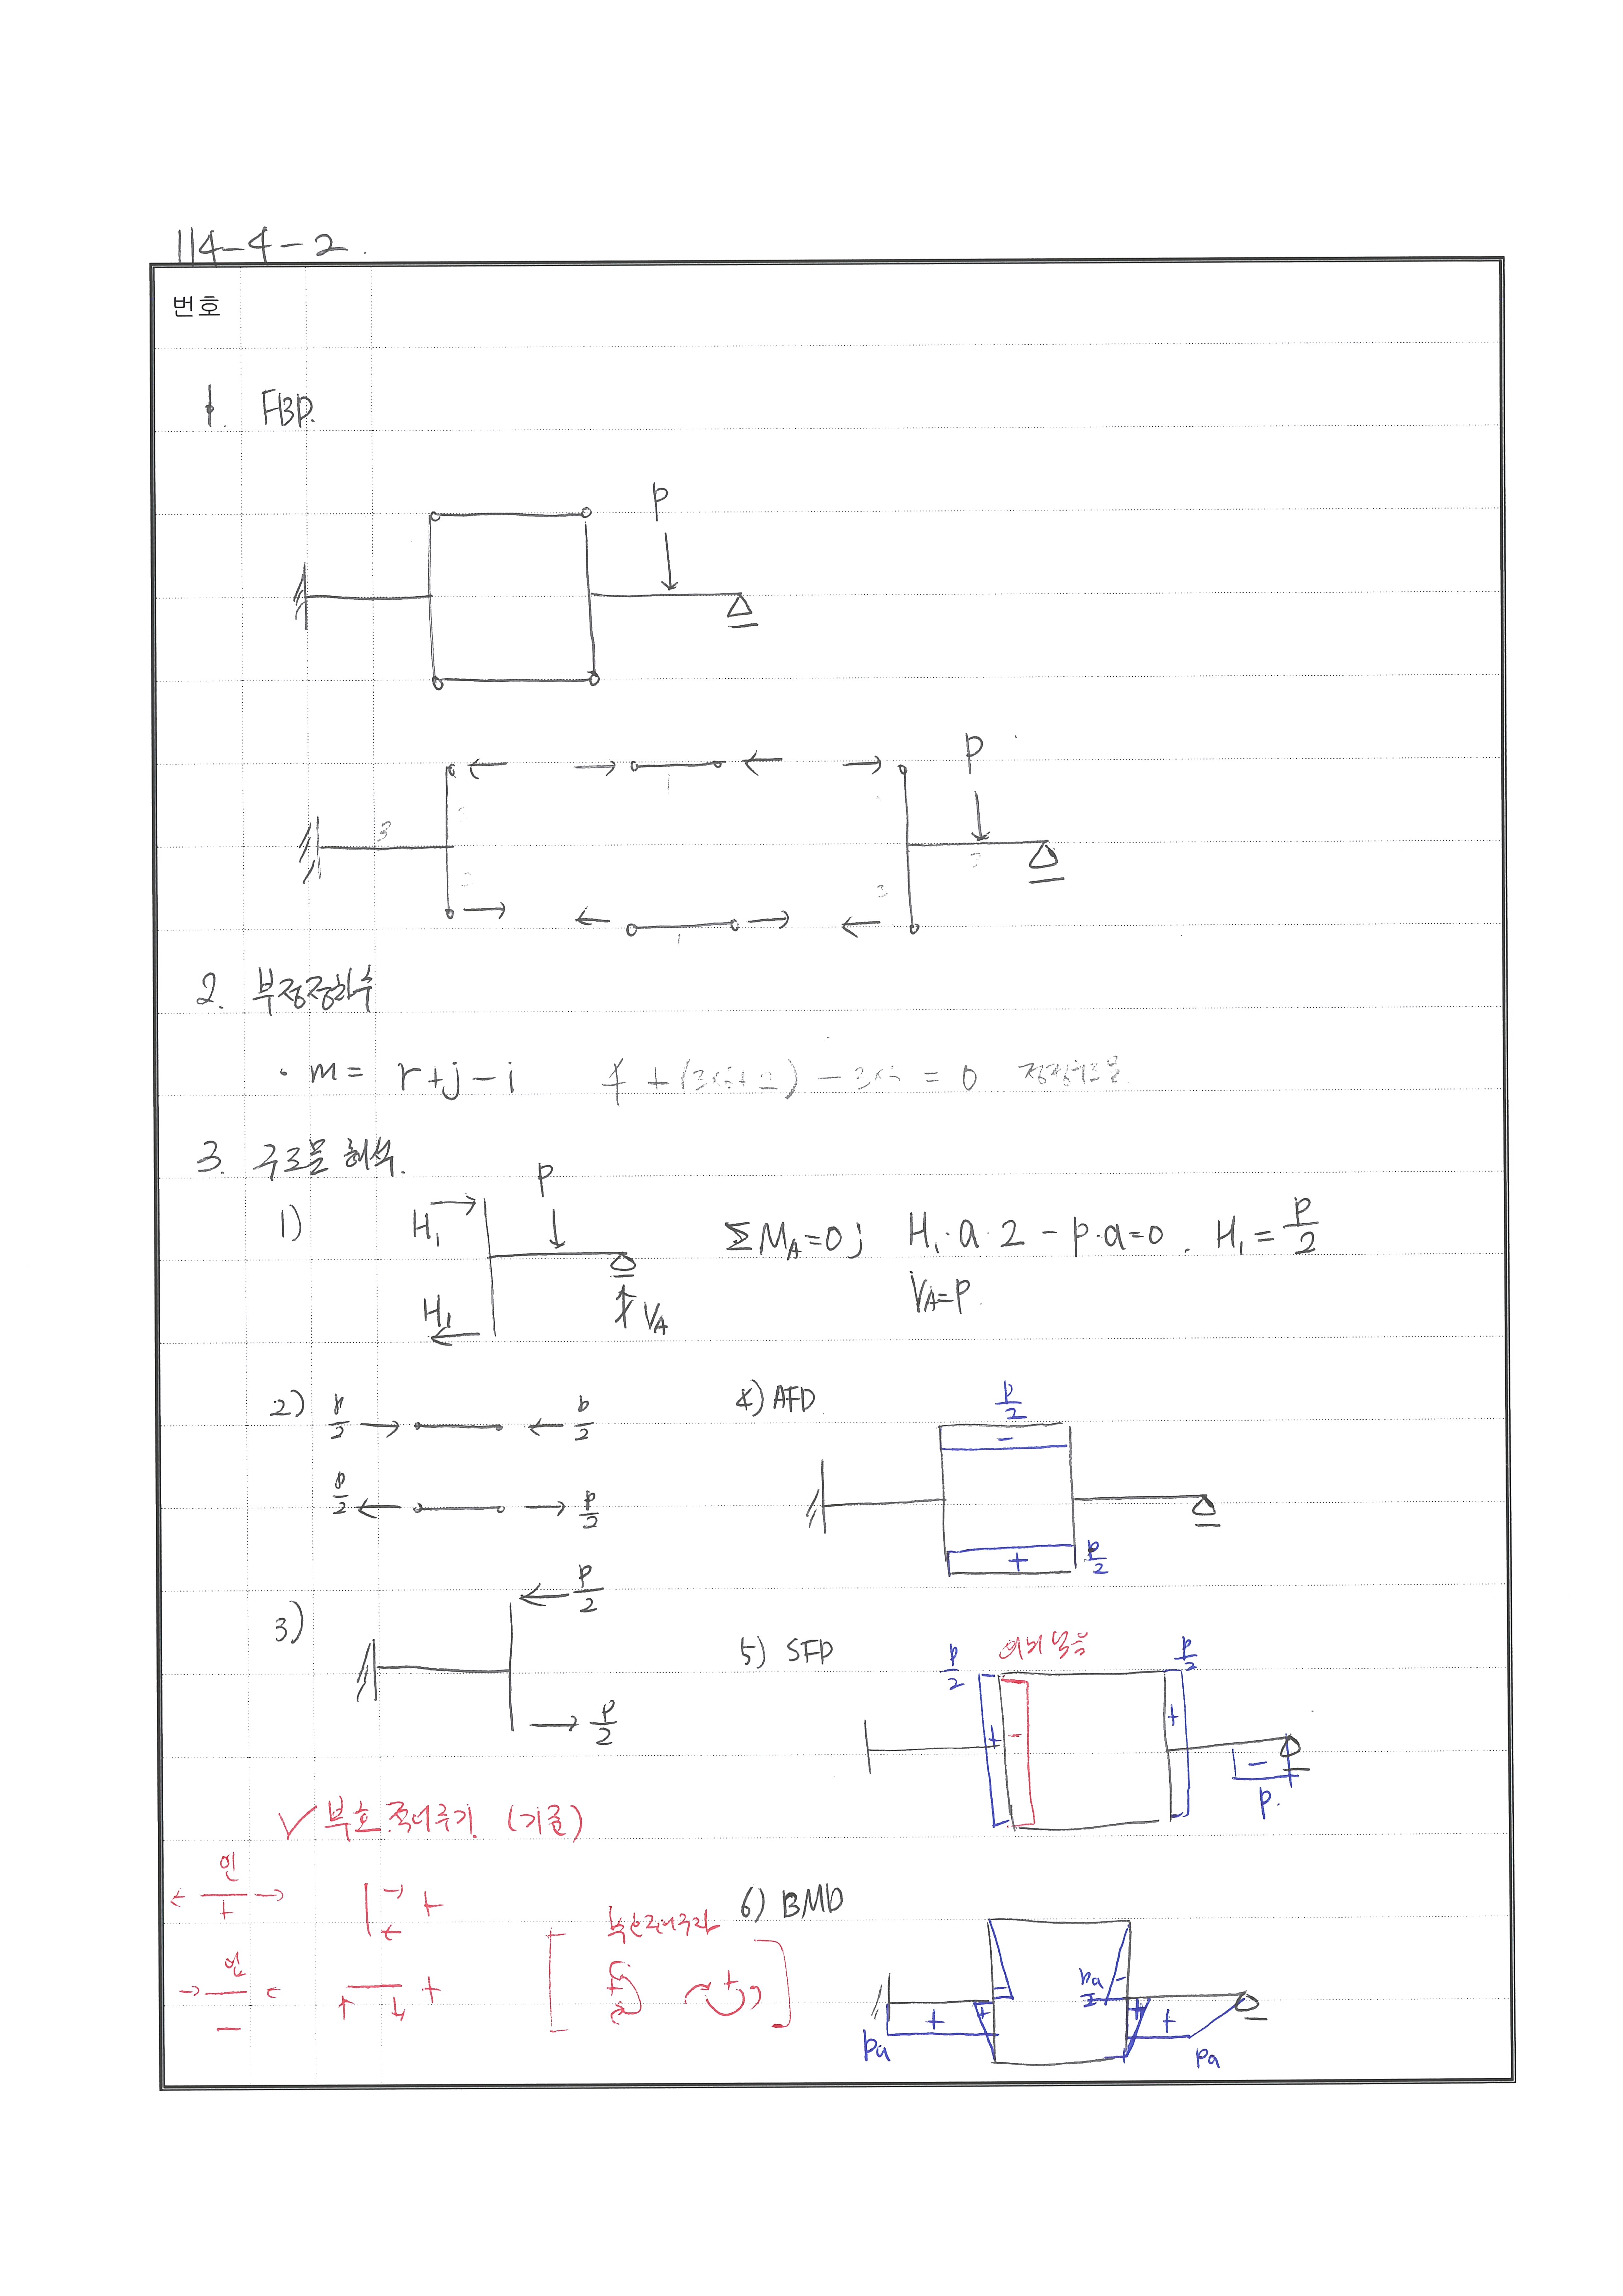 114-4-2.
번호
1. FBD.
P
P
3
1
3
1
2. 부정정차수
· m = r+j-i 4 + (3×6+2) - 3×8 = 0 정정구조물
3. 구조물 해석.
1) H₁ P H₁ V_A ΣM_A=0; H₁·a·2 - P·a=0. H₁ = P/2
V_A=P.
2) P/2 P/2
P/2 P/2
4) AFD P/2 - + P/2
3) P/2 P/2
5) SFD P/2 + - P/2 + - P.
✓ 부호 적어주기 (기준)
인 +
압 -
+
+
6) BMD
Pa + + - Pa - + + Pa